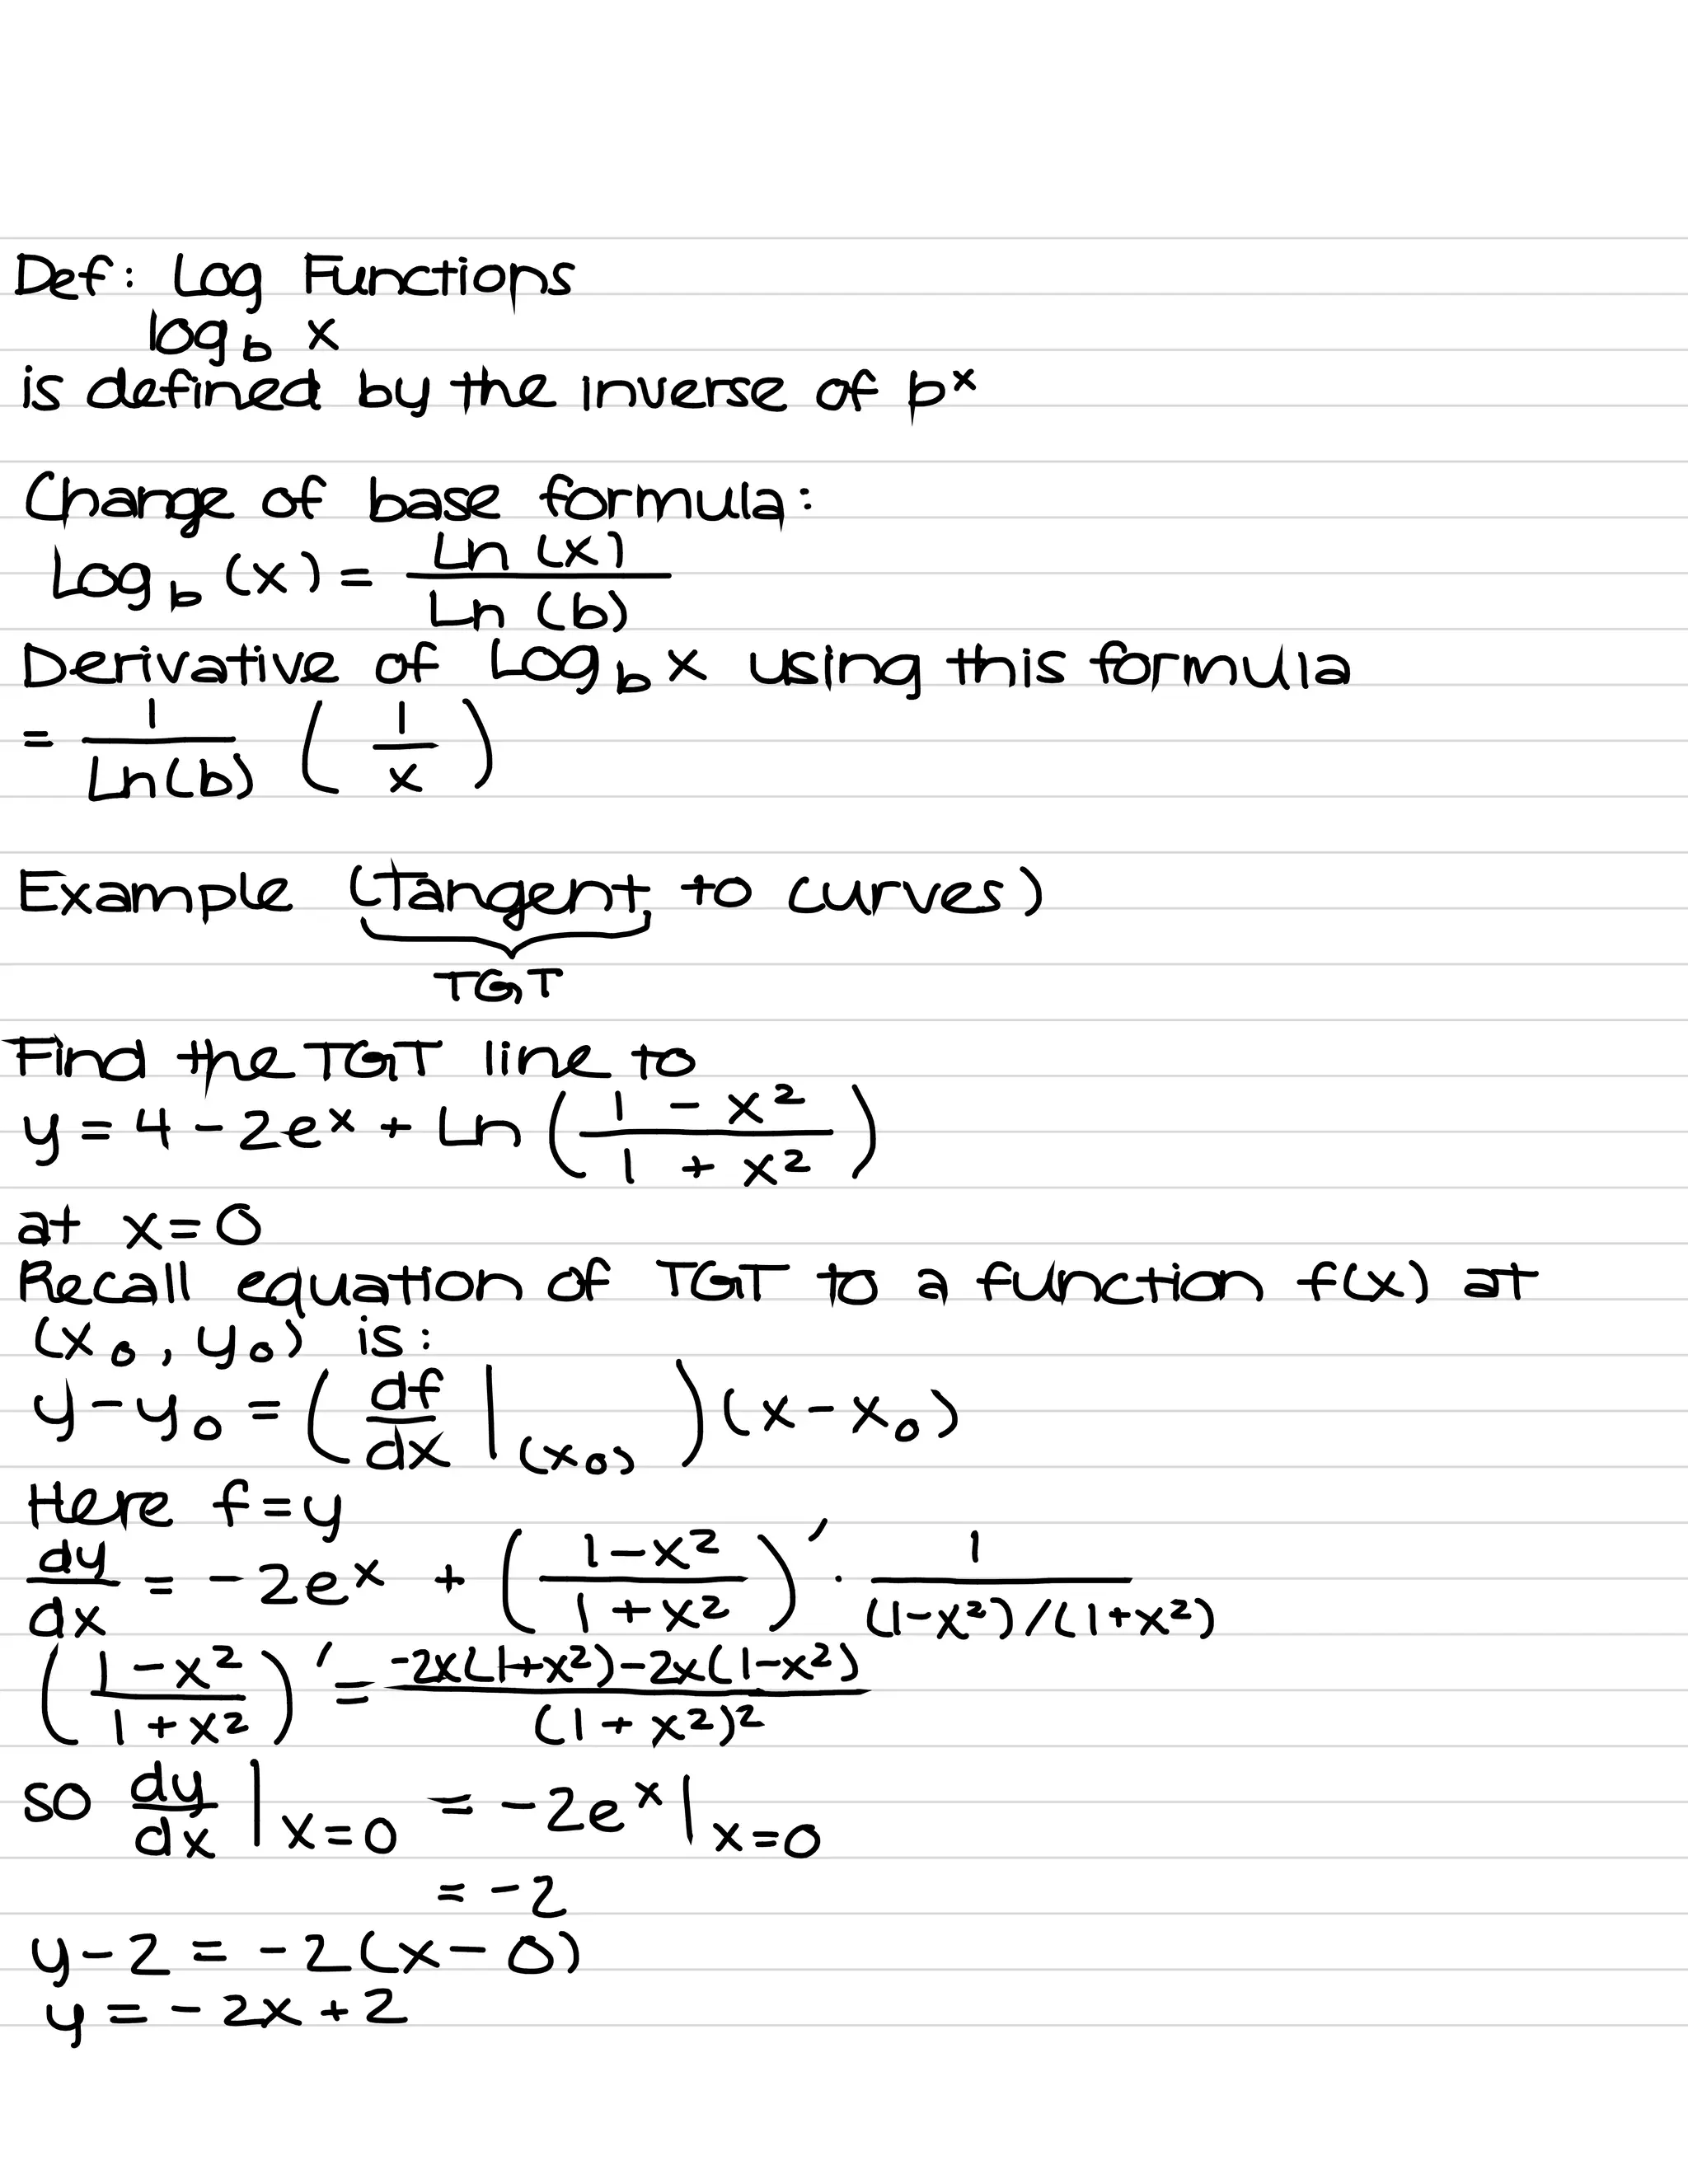 Def: Log Functiops
log_b x
is defined by the inverse of p^x
Change of base formula:
Log_b (x) = Ln (x) / Ln (b)
Derivative of Log_b x using this formula
= 1 / Ln(b) ( 1 / x )
Example (Tangent to curves)
TGT
Find the TGT line to
y = 4 - 2e^x + Ln ( (1 - x^2) / (1 + x^2) )
at x = 0
Recall equation of TGT to a function f(x) at
(x_0, y_0) is:
y - y_0 = ( df/dx |_(x_0) ) (x - x_0)
Here f = y
dy/dx = -2e^x + ( (1 - x^2) / (1 + x^2) )' · 1 / ((1-x^2)/(1+x^2))
( (1 - x^2) / (1 + x^2) )' = (-2x(1+x^2) - 2x(1-x^2)) / (1 + x^2)^2
so dy/dx |_x=0 = -2e^x |_x=0
= -2
y - 2 = -2(x - 0)
y = -2x + 2